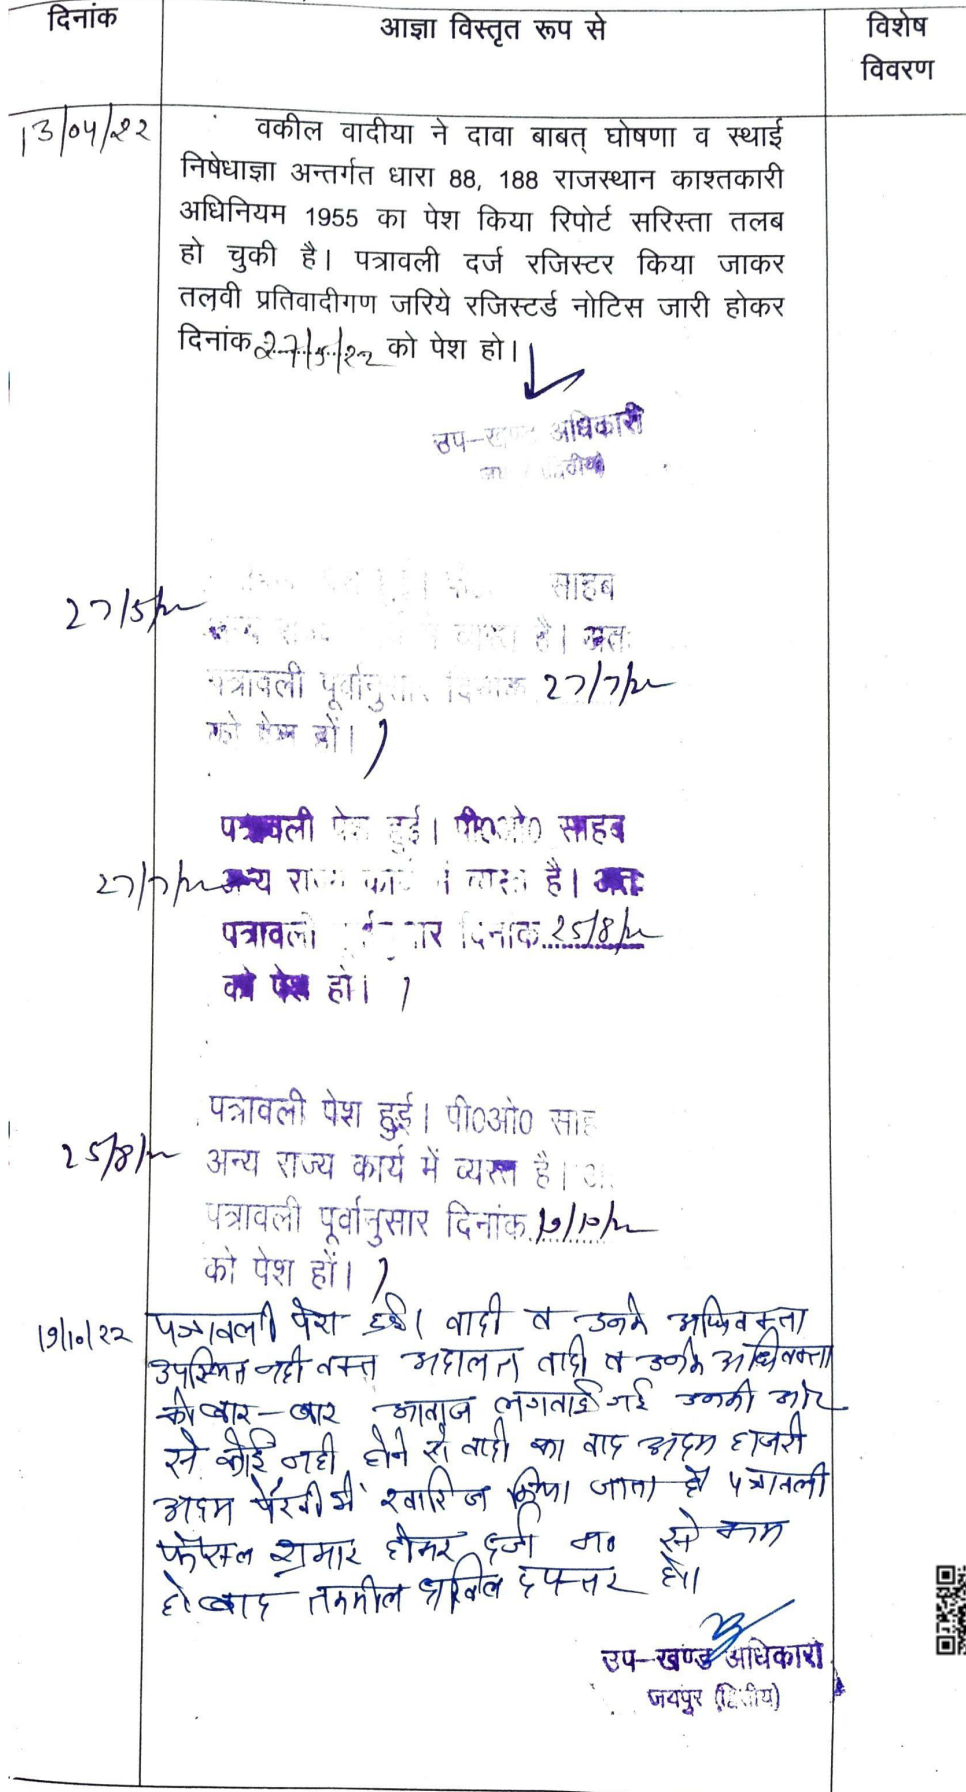 दिनांक
आज्ञा विस्तृत रूप से
विशेष
विवरण
13/04/22
वकील वादीया ने दावा बाबत् घोषणा व स्थाई
निषेधाज्ञा अन्तर्गत धारा 88, 188 राजस्थान काश्तकारी
अधिनियम 1955 का पेश किया रिपोर्ट सरिस्ता तलब
हो चुकी है। पत्रावली दर्ज रजिस्टर किया जाकर
तलवी प्रतिवादीगण जरिये रजिस्टर्ड नोटिस जारी होकर
दिनांक 27/5/22 को पेश हो।
उप-खण्ड अधिकारी
साहब
27/5/22
है। अतः
पत्रावली पूर्वानुसार दिनांक 27/7/22
को पेश हों।
पत्रावली पेश हुई। पी0ओ0 साहब
27/7/22 अन्य राज्य कार्य में व्यस्त है। अतः
पत्रावली दिनांक 25/8/22
को पेश हो।
पत्रावली पेश हुई। पी0ओ0 साह
25/8/22 अन्य राज्य कार्य में व्यस्त है।
पत्रावली पूर्वानुसार दिनांक 19/10/22
को पेश हों।
19/10/22 पत्रावली पेश हुई। वादी व उनके अधिवक्ता
उपस्थित नही वक्त अदालत वादी व उनके अधिवक्ता
को बार-बार आवाज लगवाई गई उनकी ओर
से कोई नही होने से वादी का वाद अदम हाजरी
अदम पैरवी में खारिज किया जाता है पत्रावली
फैसल शुमार होकर दर्ज न० से कम
हो बाद तकमील दाखिल दफ्तर हो।
उप-खण्ड अधिकारी
जयपुर (द्वितीय)